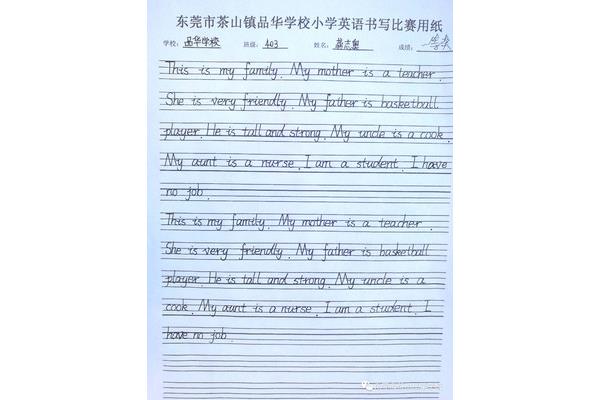 东莞市茶山镇品华学校小学英语书写比赛用纸
学校: 品华学校 班级: 403 姓名: 志 成绩: 一等奖
This is my family. My mother is a teacher.
She is very friendly. My father is basketball
player. He is tall and strong. My uncle is a cook.
My aunt is a nurse. I am a student. I have
no job.
This is my family. My mother is a teacher.
She is very friendly. My father is basketball
player. He is tall and strong. My uncle is a
cook. My aunt is a nurse. I am a student. I
have no job.